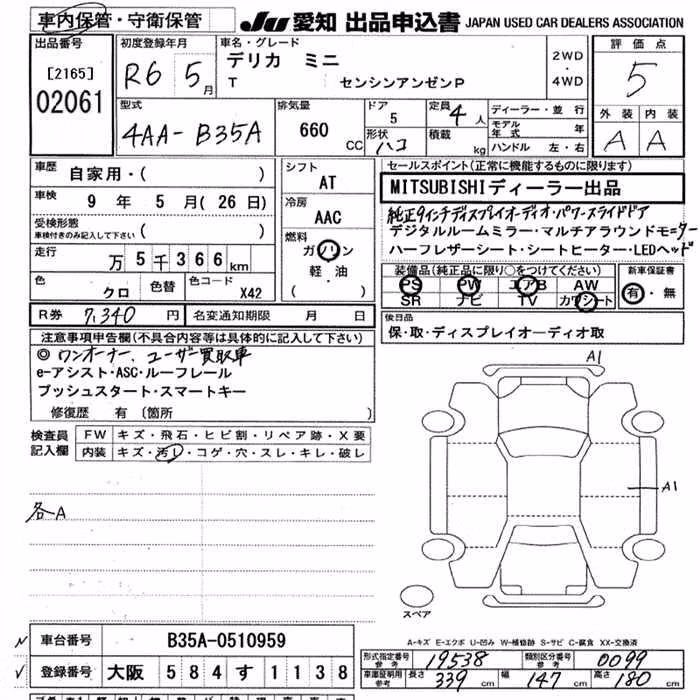 車内保管・守衛保管
JU 愛知 出品申込書 JAPAN USED CAR DEALERS ASSOCIATION
出品番号
[2165]
02061
初度登録年月
R6 5月
車名・グレード
デリカ ミニ
T センシンアンゼンP
2WD
・
4WD
評価点
5
型式
4AA-B35A
排気量
660 CC
ドア
5
定員
4人
形状
ハコ
積載
kg
ディーラー・並行
モデル年式 年
ハンドル 左・右
外装 内装
A A
車歴
自家用・( )
車検
9年 5月(26日)
受検形態
車検付きのみ記入して下さい ( )
走行
万5千366km
色
クロ
色替
色コード
X42
シフト
AT
冷房
AAC
燃料
ガソリン
軽・油
( )
セールスポイント(正常に機能するものに限ります)
MITSUBISHIディーラー出品
純正9インチディスプレイオーディオ・パワースライドドア
デジタルルームミラー・マルチアラウンドモニター
ハーフレザーシート・シートヒーター・LEDヘッド
装備品(純正品に限り○をつけてください)
PS PW エアB AW
SR ナビ TV カワシート
新車保証書
有・無
R券 7,340円
名変通知期限 月 日
後日品
保・取・ディスプレイオーディオ取
注意事項申告欄(不具合内容等は具体的に記入して下さい)
◎ワンオーナー、ユーザー買取車
e-アシスト・ASC・ルーフレール
プッシュスタート・スマートキー
修復歴 有(箇所 )
検査員記入欄
FW キズ・飛石・ヒビ割・リペア跡・X要
内装 キズ・汚し・コゲ・穴・スレ・キレ・破レ
各A
A1
A1
スペア
A-キズ E-エクボ U-凹み W-補修跡 S-サビ C-腐食 XX-交換済
車台番号 B35A-0510959
登録番号 大阪 584す1138
形式指定番号 参考 19538
類別区分番号 参考 0099
車庫証明用 参考 長さ 339cm 幅 147cm 高さ 180cm